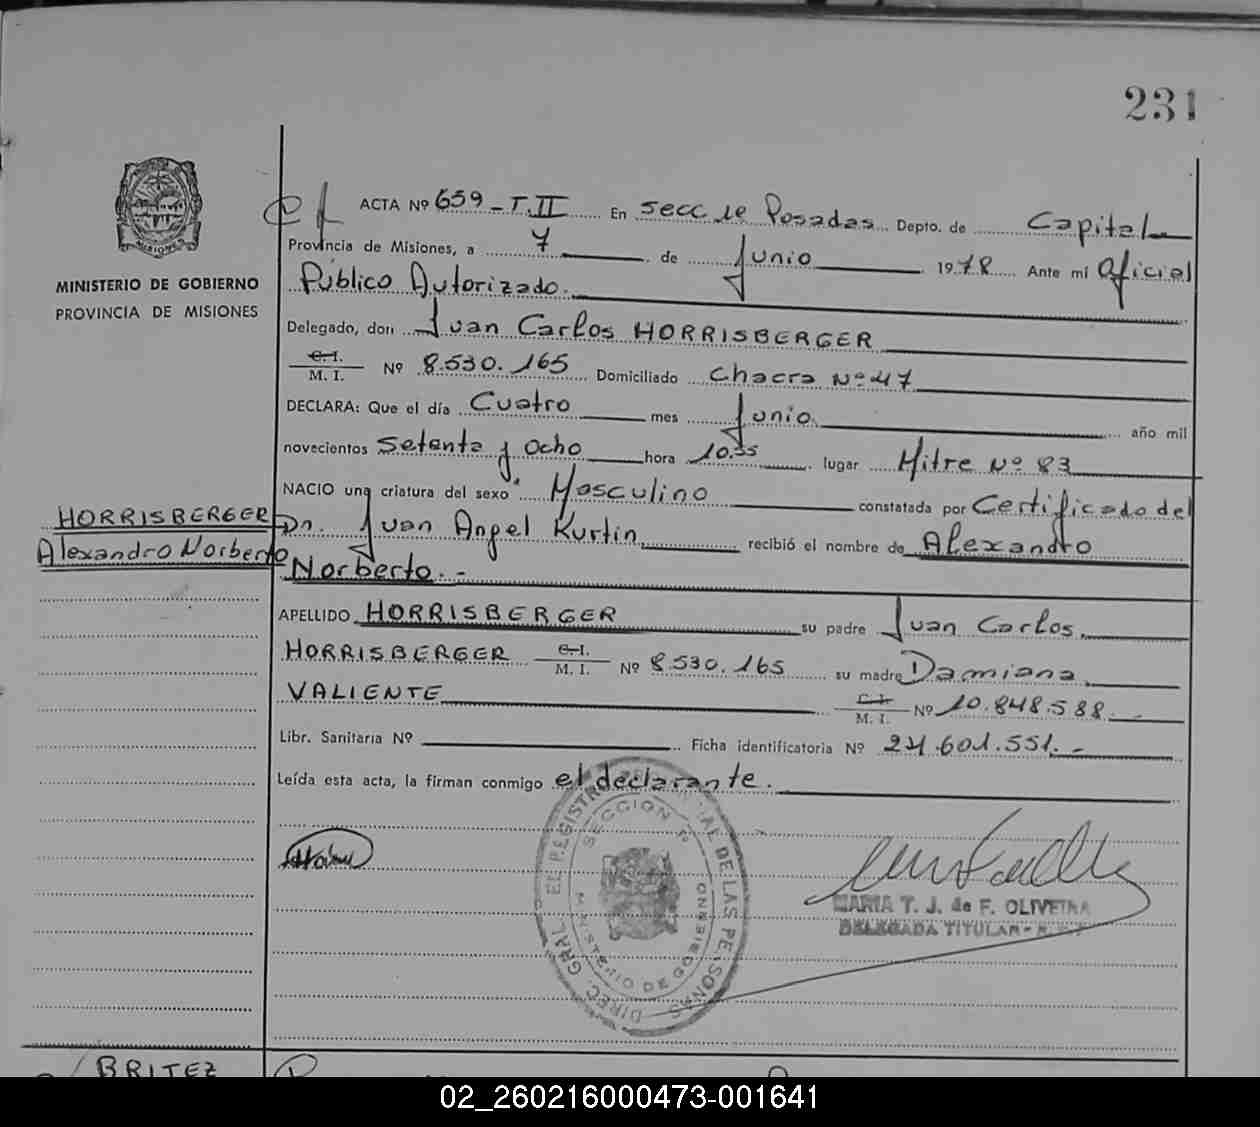 231
MINISTERIO DE GOBIERNO
PROVINCIA DE MISIONES
ACTA Nº 659 - T.II En secc 1e Posadas Depto. de Capital
Provincia de Misiones, a 7 de Junio 1978 Ante mí Oficial
Público Autorizado.
Delegado, don Juan Carlos HORRISBERGER
C.I. M. I. Nº 8.530.165 Domiciliado Chacra Nº 47
DECLARA: Que el día Cuatro mes Junio año mil
novecientos Setenta y Ocho hora 10.35 lugar Mitre Nº 83
NACIO una criatura del sexo Masculino constatada por Certificado del
HORRISBERGER
Alexandro Norberto
Dr. Juan Angel Kurtin recibió el nombre de Alexandro
Norberto. -
APELLIDO HORRISBERGER su padre Juan Carlos
HORRISBERGER C.I. M. I. Nº 8.530.165 su madre Damiana
VALIENTE C.I. M. I. Nº 10.848.588. -
Libr. Sanitaria Nº Ficha identificatoria Nº 24.601.551. -
Leída esta acta, la firman conmigo el declarante.
DIREC. GRAL. DEL REGISTRO DE LAS PERSONAS
SECCION 1º
MINISTERIO DE GOBIERNO
MARIA T. J. de F. OLIVEIRA
DELEGADA TITULAR
BRITEZ
02_260216000473-001641